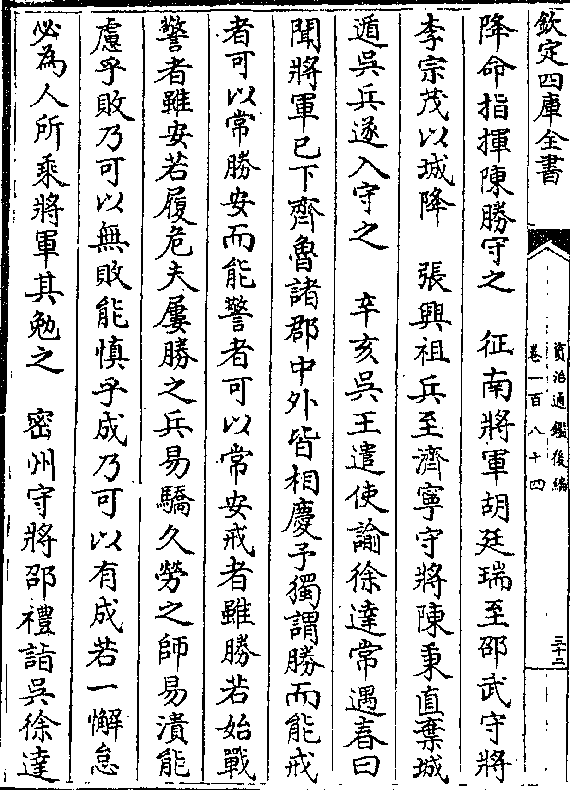 欽定四庫全書
資治通鑑後編
卷一百八十四
三十二
降命指揮陳勝守之　征南將軍胡廷瑞至邵武守將
李宗茂以城降　張興祖兵至濟寧守將陳秉直棄城
遁吳兵遂入守之　辛亥吳王遣使諭徐達常遇春曰
聞將軍已下齊魯諸郡中外皆相慶予獨謂勝而能戒
者可以常勝安而能警者可以常安戒者雖勝若始戰
警者雖安若履危夫屢勝之兵易驕久勞之師易潰能
慮乎敗乃可以無敗能慎乎成乃可以有成若一懈怠
必為人所乘將軍其勉之　密州守將邵禮詣吳徐達